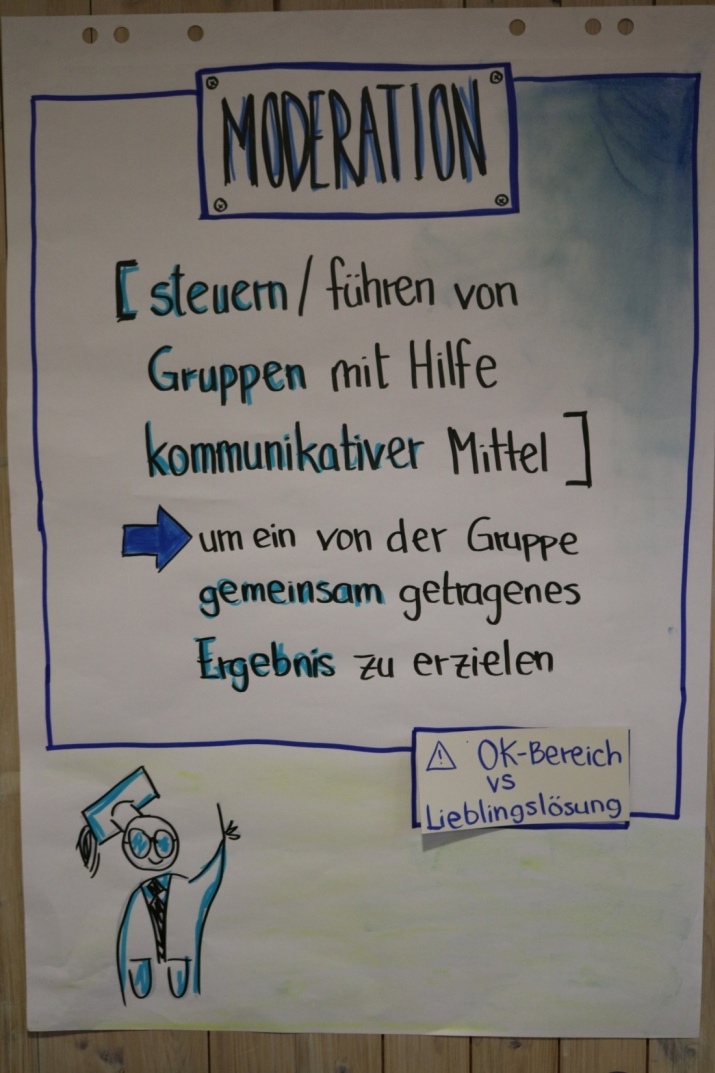 MODERATION
[ steuern / führen von
Gruppen mit Hilfe
kommunikativer Mittel ]
um ein von der Gruppe
gemeinsam getragenes
Ergebnis zu erzielen
OK-Bereich
vs
Lieblingslösung